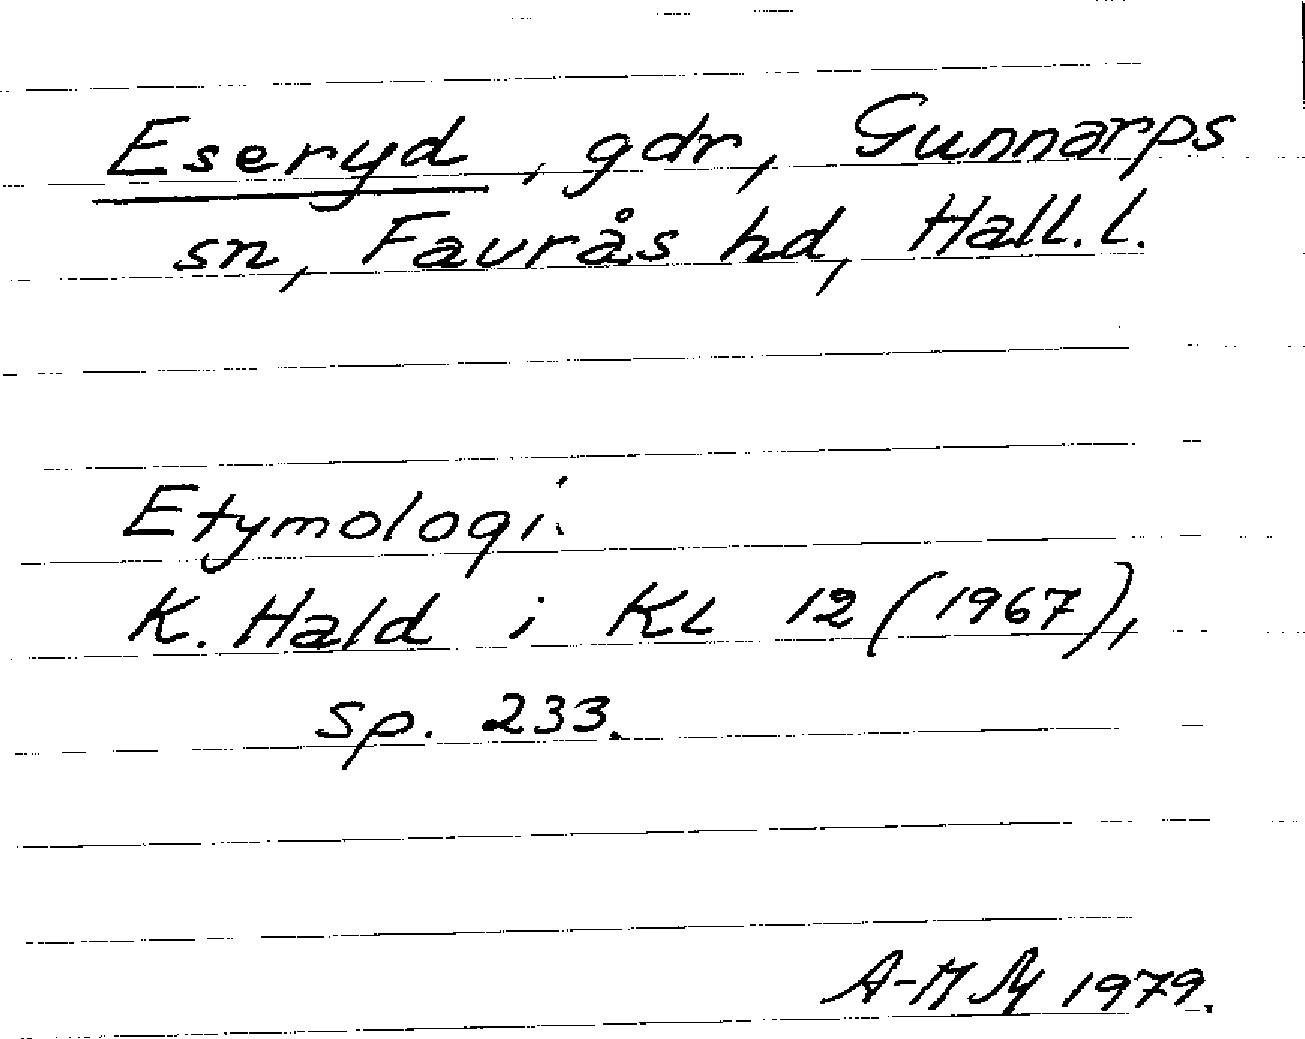 Eseryd, gdr, Gunnarps
sn, Faurås hd, Hall. l.
Etymologi:
K. Hald i KL 12 (1967),
sp. 233.
A-M 1979.